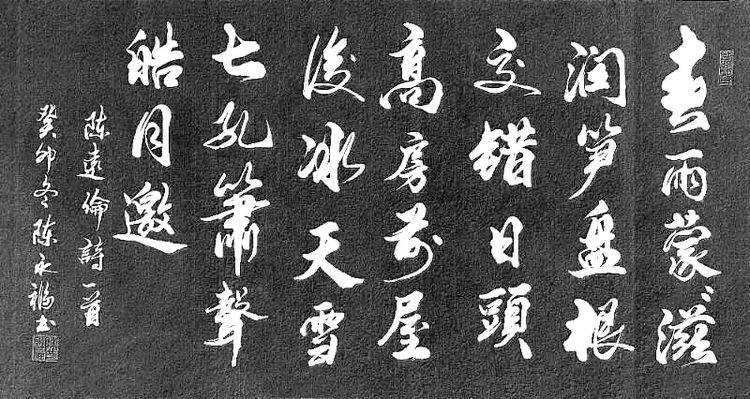 春雨蒙々滋
润笋盘根
交错日頭
高房前屋
後冰天雪
七孔簫聲
皓月邀
陈遠倫詩一首
癸卯冬陈永福书